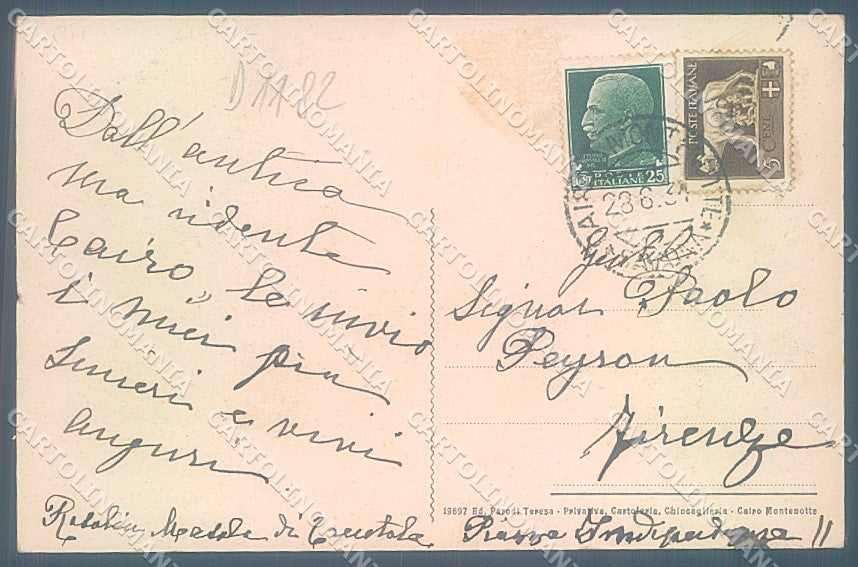 D AA 82
Dall'antica
ma ridente
Cairo, Le invio
i miei più
sinceri e vivi
auguri
POSTE
ITALIANE 25
POSTE ITALIANE
5 CENT
CAIRO MONTENOTTE
28.6.3
Gent.
Signor Paolo
Peyron
Firenze
19697 Ed. Parodi Teresa - Privativa, Cartoleria, Chincaglieria - Cairo Montenotte
di
Piazza Indipendenza 11
CARTOLINOMANIA